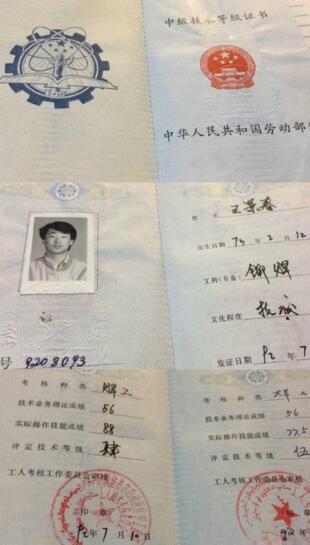 中级技术等级证书
中华人民共和国劳动部
姓名 王景春
出生日期 73 年 3 月 12
工种(专业) 铆焊
文化程度 技
号 9208093
发证日期 92 年 7
考核种类 焊工
技术业务理论成绩 56
实际操作技能成绩 88
评定技术等级 肆
工人考核工作委员会审核
印章
92 年 7 月 10 日
考核种类
技术业务理论成绩 56
实际操作技能成绩 77.5
评定技术等级 伍
工人考核工作委员会审核
印章
92 年